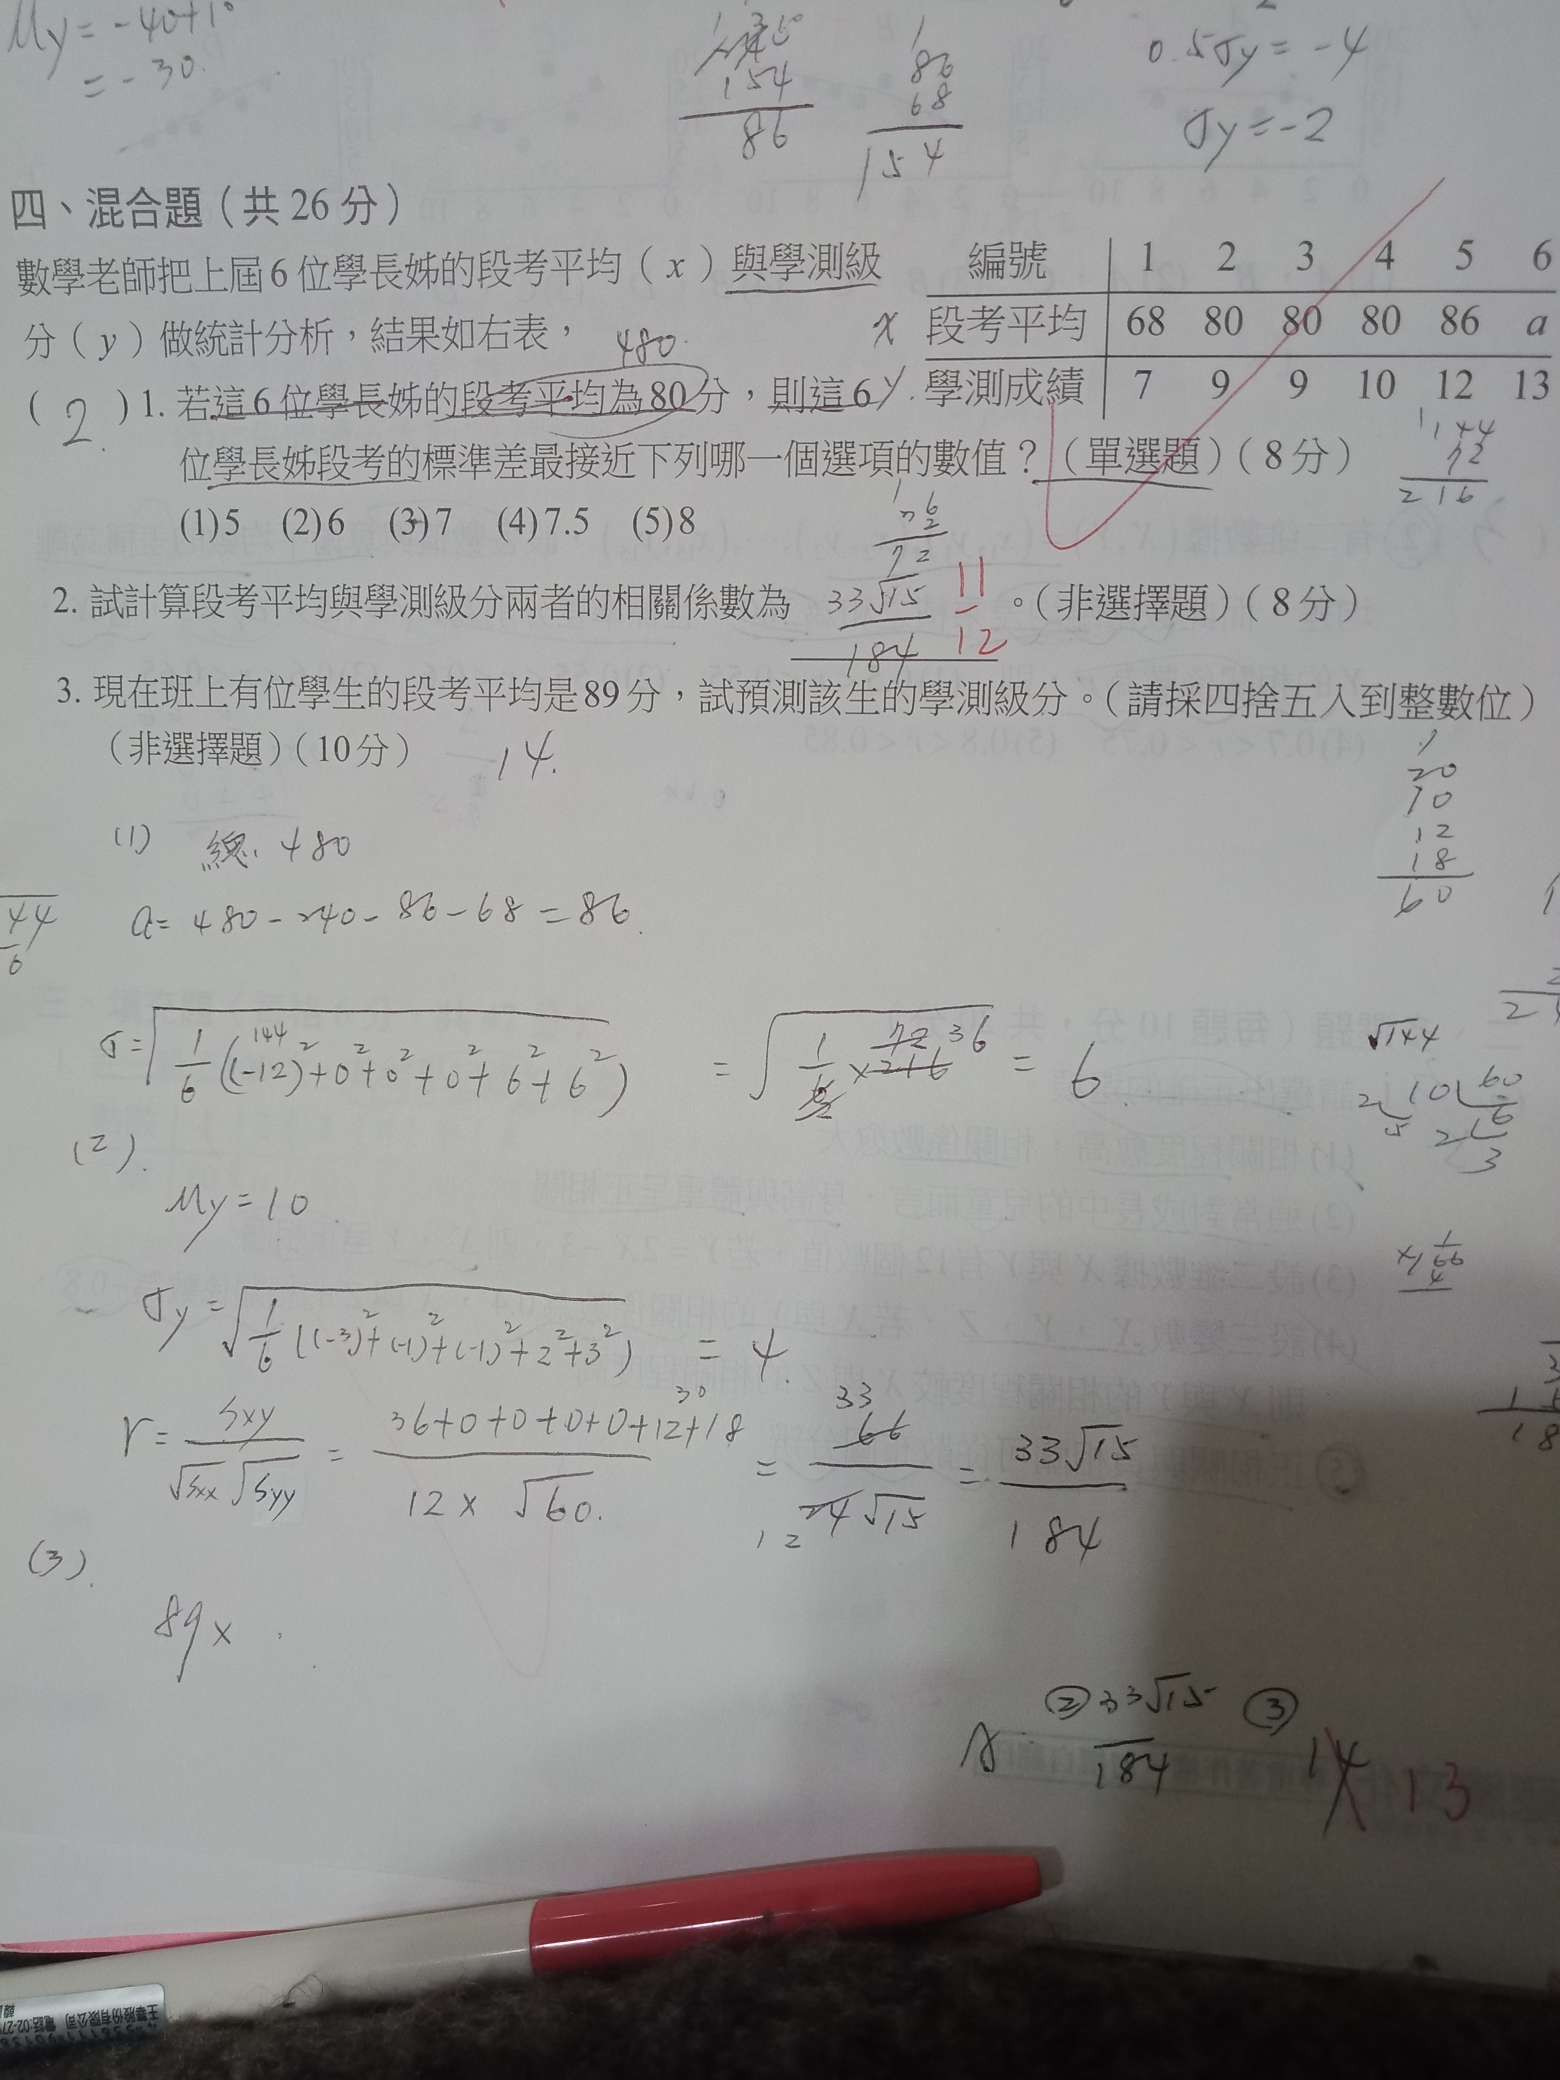 My = -40+10
= -30.
154
86
86
68
154
0.5σy = -4
σy = -2
四、混合題(共 26 分)
數學老師把上屆 6 位學長姊的段考平均(x)與學測級
分(y)做統計分析,結果如右表,
480.
編號 1 2 3 4 5 6
x 段考平均 68 80 80 80 86 a
y. 學測成績 7 9 9 10 12 13
( 2. ) 1. 若這 6 位學長姊的段考平均為 80 分,則這 6
位學長姊段考的標準差最接近下列哪一個選項的數值?(單選題)(8 分)
(1) 5 (2) 6 (3) 7 (4) 7.5 (5) 8
144
72
216
36
2
72
2. 試計算段考平均與學測級分兩者的相關係數為 33√15/184 11/12 。(非選擇題)(8 分)
3. 現在班上有位學生的段考平均是 89 分,試預測該生的學測級分。(請採四捨五入到整數位)
(非選擇題)(10 分) 14.
20
10
12
18
60
(1) 總. 480
a = 480 - 240 - 86 - 68 = 86.
44
6
σ = √(1/6 ((-12)²+0²+0²+0²+6²+6²)) = √(1/6 × 216) = 6
144
72 36
√144
(2).
My = 10
σy = √(1/6 ((-3)²+(-1)²+(-1)²+2²+3²)) = 4.
r = Sxy/(√Sxx √Syy) = (36+0+0+0+0+12+18)/(12 × √60.) = 66/(24√15) = 33√15/184
30
33
12
(3).
89x
A ② 33√15/184 ③ 14 13